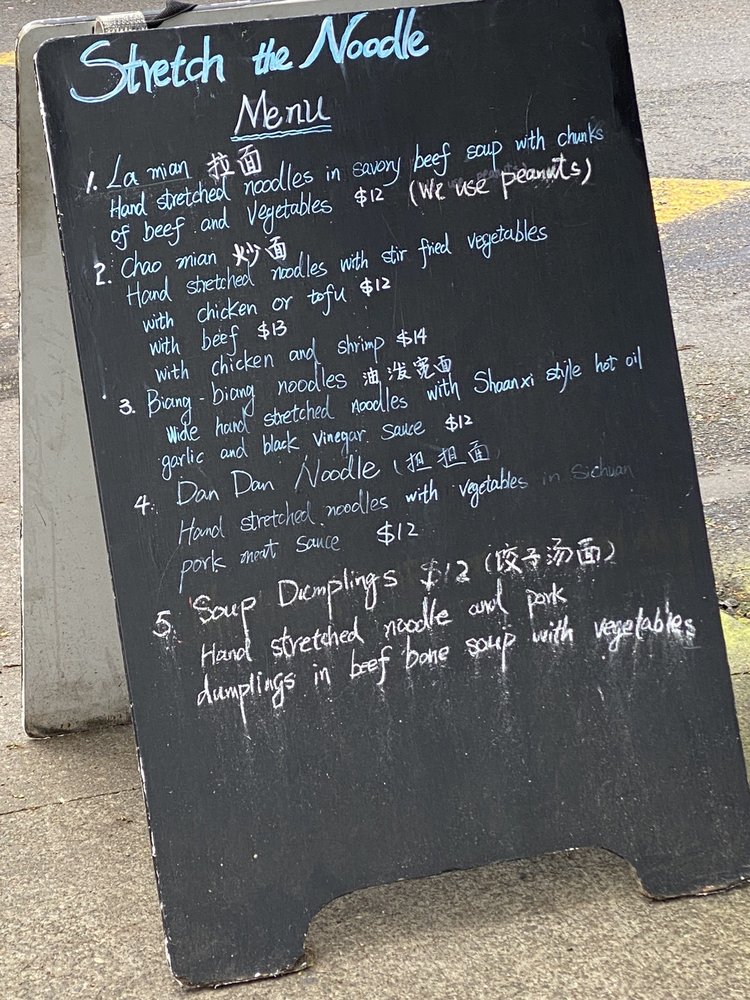 Stretch the Noodle
Menu
1. La mian 拉面
Hand stretched noodles in savory beef soup with chunks
of beef and Vegetables $12 (We use peanuts)
2. Chao mian 炒面
Hand stretched noodles with stir fried vegetables
with chicken or tofu $12
with beef $13
with chicken and shrimp $14
3. Biang-biang noodles 油泼宽面
Wide hand stretched noodles with Shaanxi style hot oil
garlic and black vinegar sauce $12
4. Dan Dan Noodle (担担面)
Hand stretched noodles with vegetables in Sichuan
pork meat sauce $12
5. Soup Dumplings $12 (饺子汤面)
Hand stretched noodle and pork
dumplings in beef bone soup with vegetables